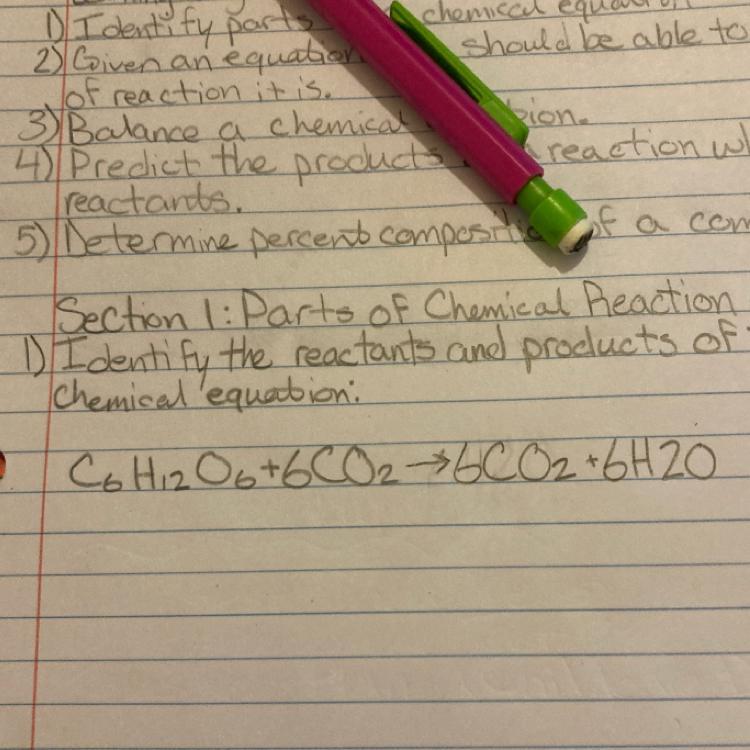 1) Identify parts chemical
2) Given an equation should be able to
of reaction it is.
3) Balance a chemical
4) Predict the products reaction
reactants.
5) Determine percent of a
Section 1: Parts of Chemical Reaction
1) Identify the reactants and products of
chemical equation:
C₆H₁₂O₆+6CO₂→6CO₂+6H2O